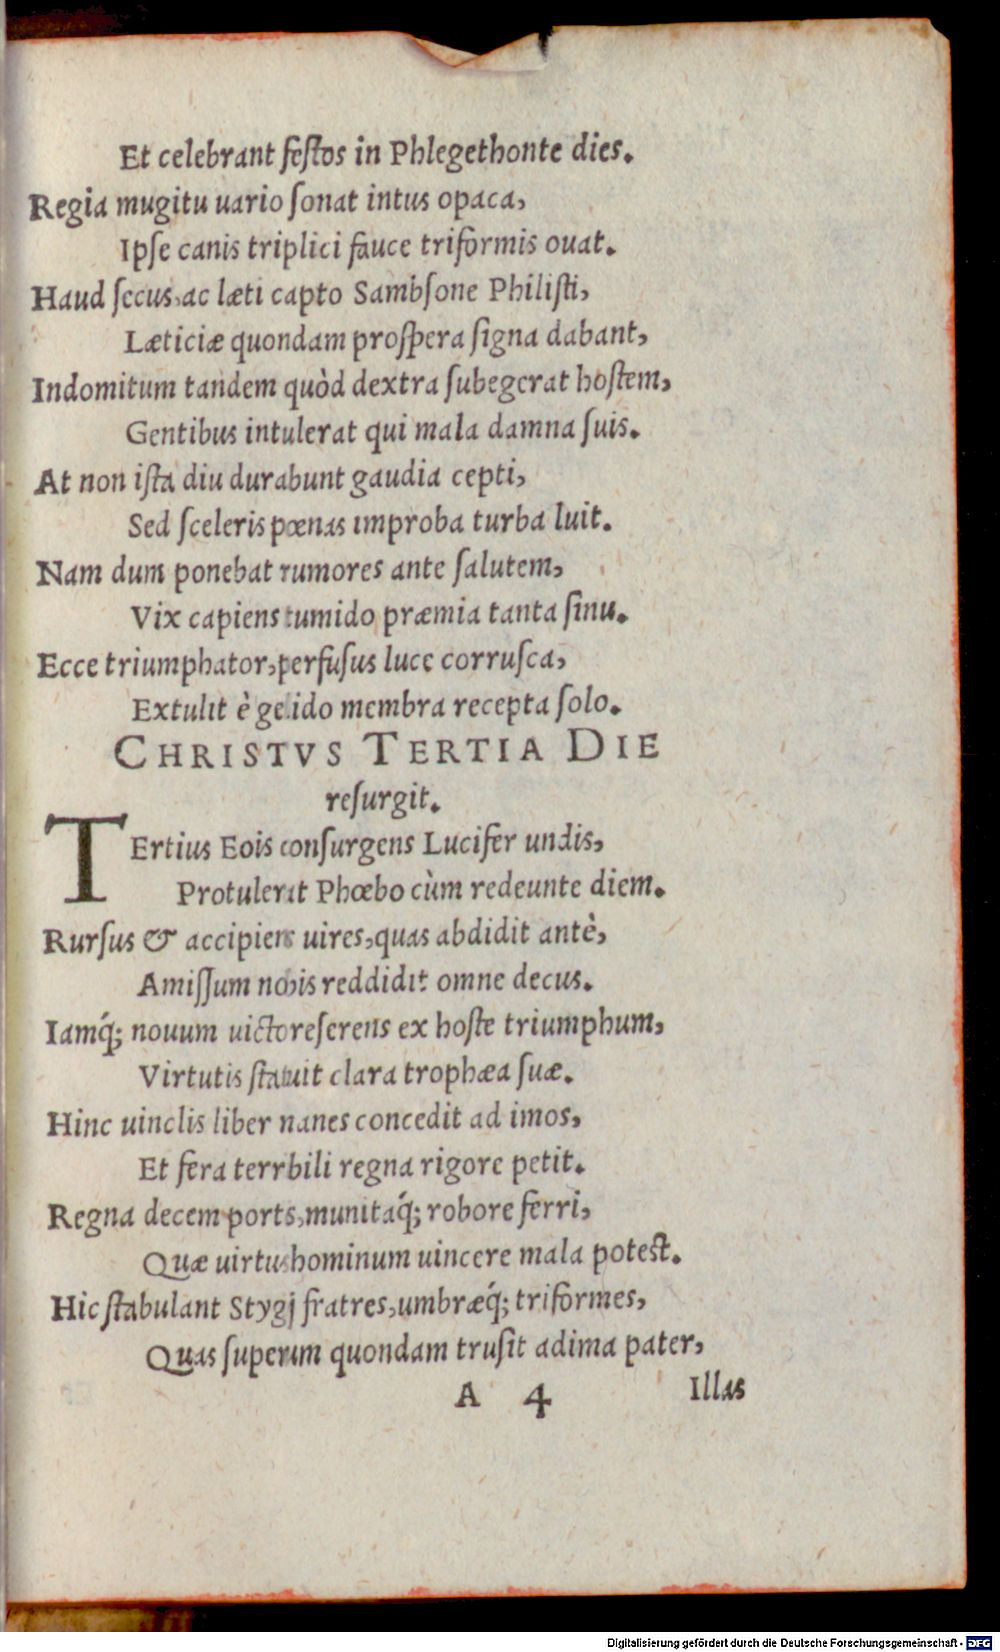 Et celebrant feſtos in Phlegethonte dies.
Regia mugitu uario ſonat intus opaca,
Ipſe canis triplici fauce triformis ouat.
Haud ſecus, ac læti capto Sambſone Philiſti,
Læticiæ quondam proſpera ſigna dabant,
Indomitum tandem quòd dextra ſubegerat hoſtem,
Gentibus intulerat qui mala damna ſuis.
At non iſta diu durabunt gaudia cepti,
Sed ſceleris pœnas improba turba luit.
Nam dum ponebat rumores ante ſalutem,
Vix capiens tumido præmia tanta ſinu.
Ecce triumphator, perfuſus luce corruſca,
Extulit è gelido membra recepta ſolo.
CHRISTVS TERTIA DIE
reſurgit.
TErtius Eois conſurgens Lucifer undis,
Protulerat Phœbo cùm redeunte diem.
Rurſus & accipiens uires, quas abdidit antè,
Amiſſum nobis reddidit omne decus.
Iamq́; nouum uictor eferens ex hoſte triumphum,
Virtutis ſtatuit clara trophæa ſuæ.
Hinc uinclis liber manes concedit ad imos,
Et fera terrbili regna rigore petit.
Regna decem ports, munitaq́; robore ferri,
Quæ uirtus hominum uincere mala poteſt.
Hic ſtabulant Stygij fratres, umbræq́; triformes,
Quas superum quondam truſit ad ima pater,
A 4 Illas
Digitalisierung gefördert durch die Deutsche Forschungsgemeinschaft - DFG